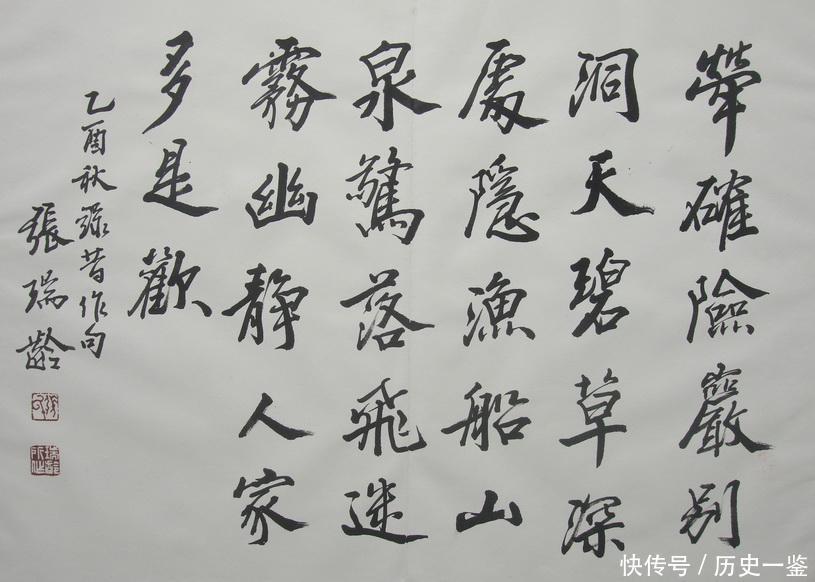 犖确險巖别
洞天碧草深
處隱漁船山
泉驚落飛迷
霧幽静人家
多是歡
乙酉秋錄昔作句
張瑞齡
快传号/历史一鉴